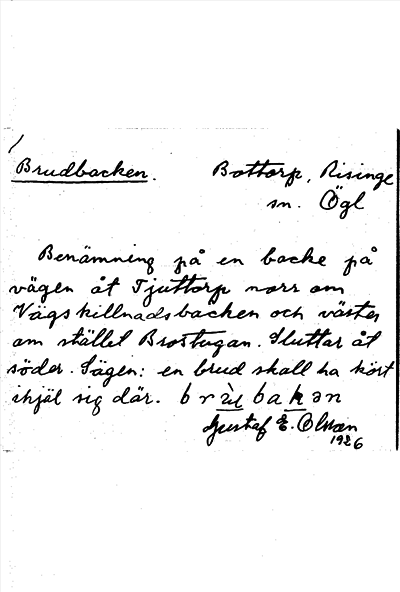 Brudbacken. Bottorp, Risinge
sn. Ögl
Benämning på en backe på
vägen åt Tjuttorp norr om
Vägskillnadsbacken och väster
om stället Brostugan. Sluttar åt
söder. Sägen: en brud skall ha kört
ihjäl sig där. brùbakən
Gustaf E. Olsson
1926